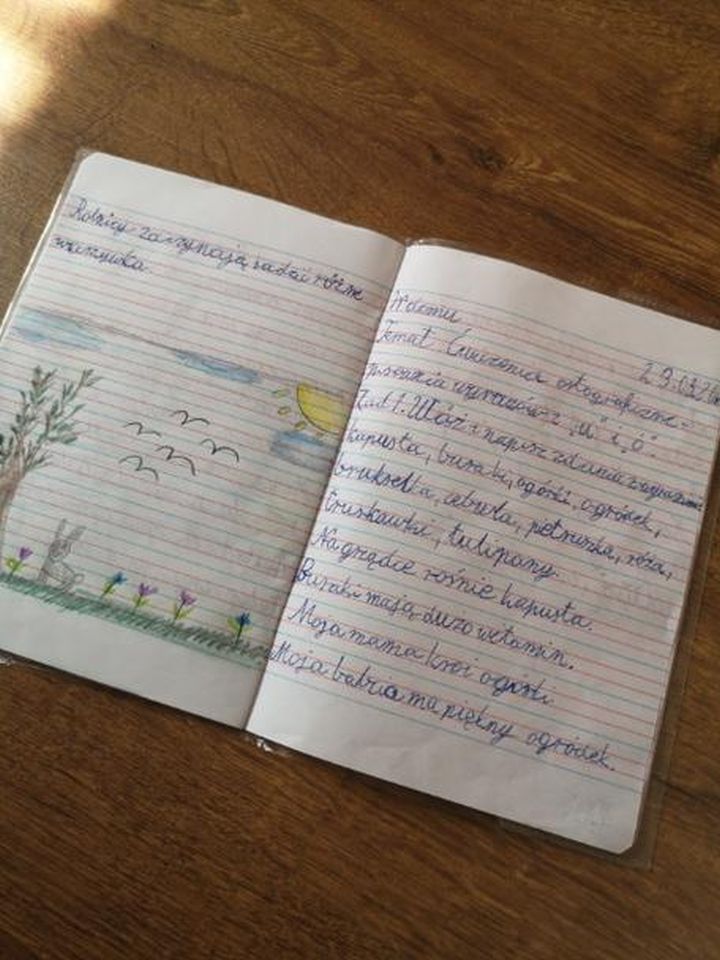 Rolnicy zaczynają sadzić różne
warzywka
W domu
29.03.20
Temat: Ćwiczenia ortograficzne -
pisania wyrazów z „u” i „ó”.
Zad 1. Ułóż i napisz zdania z wyrazami:
kapusta, buraki, ogórki, ogródek,
brukselka, cebula, petruszka, róża,
truskawki, tulipany.
Na grządce rośnie kapusta.
Buraki mają dużo wetamin.
Moja mama kroi ogórki
Moja babcia ma piękny ogródek.